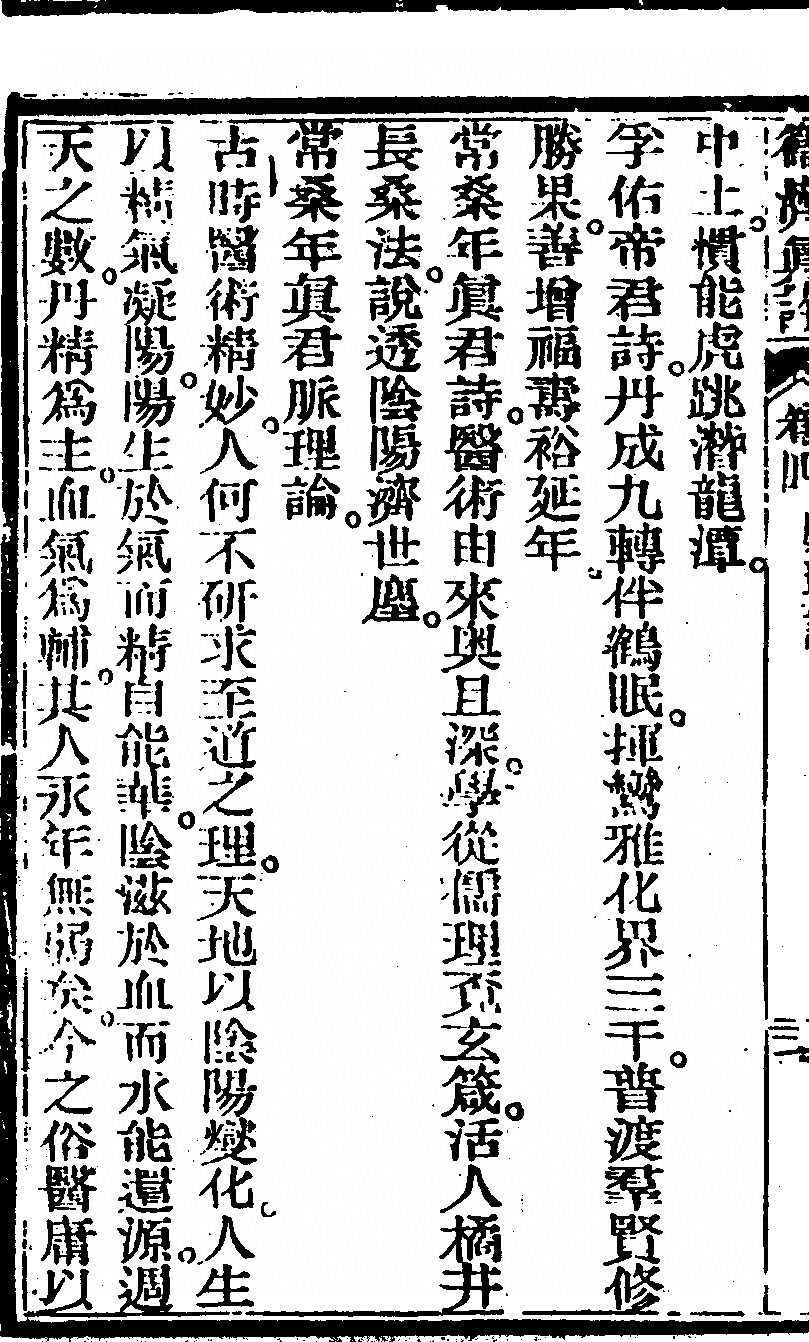 中土慣能虎跳潛龍潭。
孚佑帝君詩。丹成九轉伴鶴眠。揮鸞雅化界三千。普渡羣賢修
勝果。善增福壽裕延年。
常桑年眞君詩。醫術由來奥且深。學從儒理究玄箴。活人橘井
長桑法。說透陰陽濟世塵。
常桑年眞君脈理論。
古時醫術精妙。人何不研求至道之理。天地以陰陽變化。人生
以精氣凝陽。陽生於氣而精自能華。陰滋於血而水能還源。週
天之數。丹精爲主。血氣爲輔。其人永年無弱矣。今之俗醫庸以